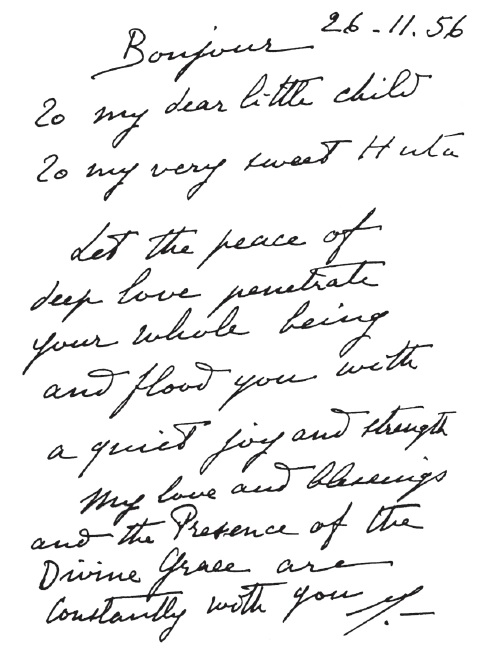 26-11.56
Bonjour
To my dear little child
To my very sweet Huta
Let the peace of
deep love penetrate
your whole being
and flood you with
a quiet joy and strength
My love and blessings
and the Presence of the
Divine Grace are
constantly with you